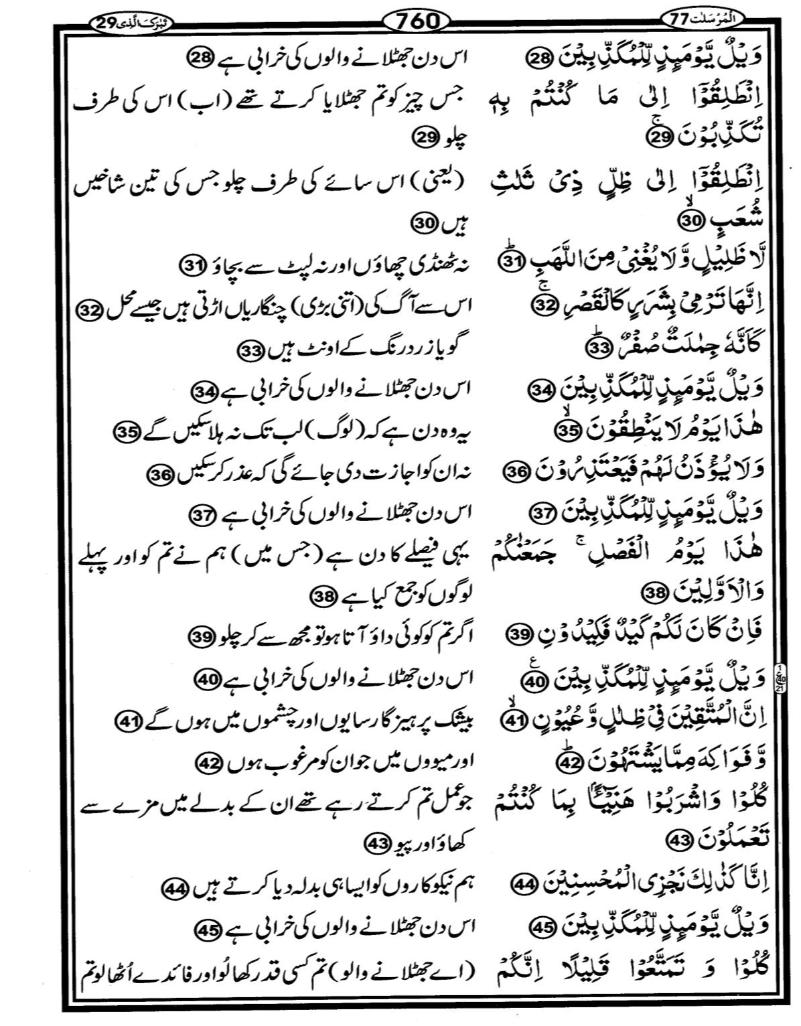 اَلْمُرْسَلٰت 77
760
تَبٰرَكَ الَّذِى 29
وَيْلٌ يَّوْمَئِذٍ لِّلْمُكَذِّبِيْنَ 28 اس دن جھٹلانے والوں کی خرابی ہے 28
اِنْطَلِقُوْٓا اِلٰى مَا كُنْتُمْ بِهٖ جس چیز کو تم جھٹلایا کرتے تھے (اب) اس کی طرف
تُكَذِّبُوْنَ ۚ 29 چلو 29
اِنْطَلِقُوْٓا اِلٰى ظِلٍّ ذِىْ ثَلٰثِ (یعنی) اس سائے کی طرف چلو جس کی تین شاخیں
شُعَبٍ ۙ 30 ہیں 30
لَّا ظَلِيْلٍ وَّلَا يُغْنِىْ مِنَ اللَّهَبِ ؕ 31 نہ ٹھنڈی چھاؤں اور نہ لپٹ سے بچاؤ 31
اِنَّهَا تَرْمِىْ بِشَرَرٍ كَالْقَصْرِ ۚ 32 اس سے آگ کی (اتنی بڑی) چنگاریاں اڑتی ہیں جیسے محل 32
كَاَنَّهٗ جِمٰلَتٌ صُفْرٌ ؕ 33 گویا زرد رنگ کے اونٹ ہیں 33
وَيْلٌ يَّوْمَئِذٍ لِّلْمُكَذِّبِيْنَ 34 اس دن جھٹلانے والوں کی خرابی ہے 34
هٰذَا يَوْمُ لَا يَنْطِقُوْنَ ۙ 35 یہ وہ دن ہے کہ (لوگ) لب تک نہ ہلا سکیں گے 35
وَلَا يُؤْذَنُ لَهُمْ فَيَعْتَذِرُوْنَ 36 نہ ان کو اجازت دی جائے گی کہ عذر کر سکیں 36
وَيْلٌ يَّوْمَئِذٍ لِّلْمُكَذِّبِيْنَ 37 اس دن جھٹلانے والوں کی خرابی ہے 37
هٰذَا يَوْمُ الْفَصْلِ ۚ جَمَعْنٰكُمْ یہی فیصلے کا دن ہے (جس میں) ہم نے تم کو اور پہلے
وَالْاَوَّلِيْنَ 38 لوگوں کو جمع کیا ہے 38
فَاِنْ كَانَ لَكُمْ كَيْدٌ فَكِيْدُوْنِ 39 اگر تم کو کوئی داؤ آتا ہو تو مجھ سے کر چلو 39
وَيْلٌ يَّوْمَئِذٍ لِّلْمُكَذِّبِيْنَ ع 40 اس دن جھٹلانے والوں کی خرابی ہے 40
اِنَّ الْمُتَّقِيْنَ فِىْ ظِلٰلٍ وَّعُيُوْنٍ ۙ 41 بیشک پرہیزگار سایوں اور چشموں میں ہوں گے 41
وَّفَوَاكِهَ مِمَّا يَشْتَهُوْنَ ؕ 42 اور میووں میں جو ان کو مرغوب ہوں 42
كُلُوْا وَاشْرَبُوْا هَنِيْٓـًٔۢا بِمَا كُنْتُمْ جو عمل تم کرتے رہے تھے ان کے بدلے میں مزے سے
تَعْمَلُوْنَ 43 کھاؤ اور پیو 43
اِنَّا كَذٰلِكَ نَجْزِى الْمُحْسِنِيْنَ 44 ہم نیکوکاروں کو ایسا ہی بدلہ دیا کرتے ہیں 44
وَيْلٌ يَّوْمَئِذٍ لِّلْمُكَذِّبِيْنَ 45 اس دن جھٹلانے والوں کی خرابی ہے 45
كُلُوْا وَ تَمَتَّعُوْا قَلِيْلًا اِنَّكُمْ (اے جھٹلانے والو) تم کسی قدر کھا لو اور فائدے اُٹھا لو تم